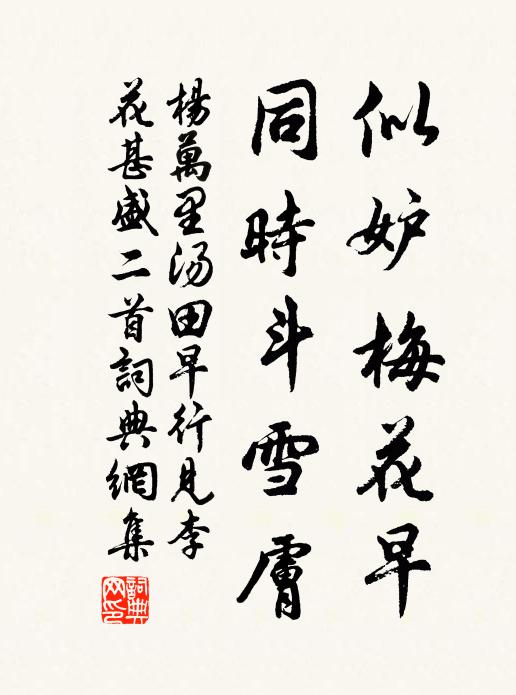 似妒梅花早
同時斗雪膚
楊萬里湯田早行見李
花甚盛二首詞典網集
詞典
网印